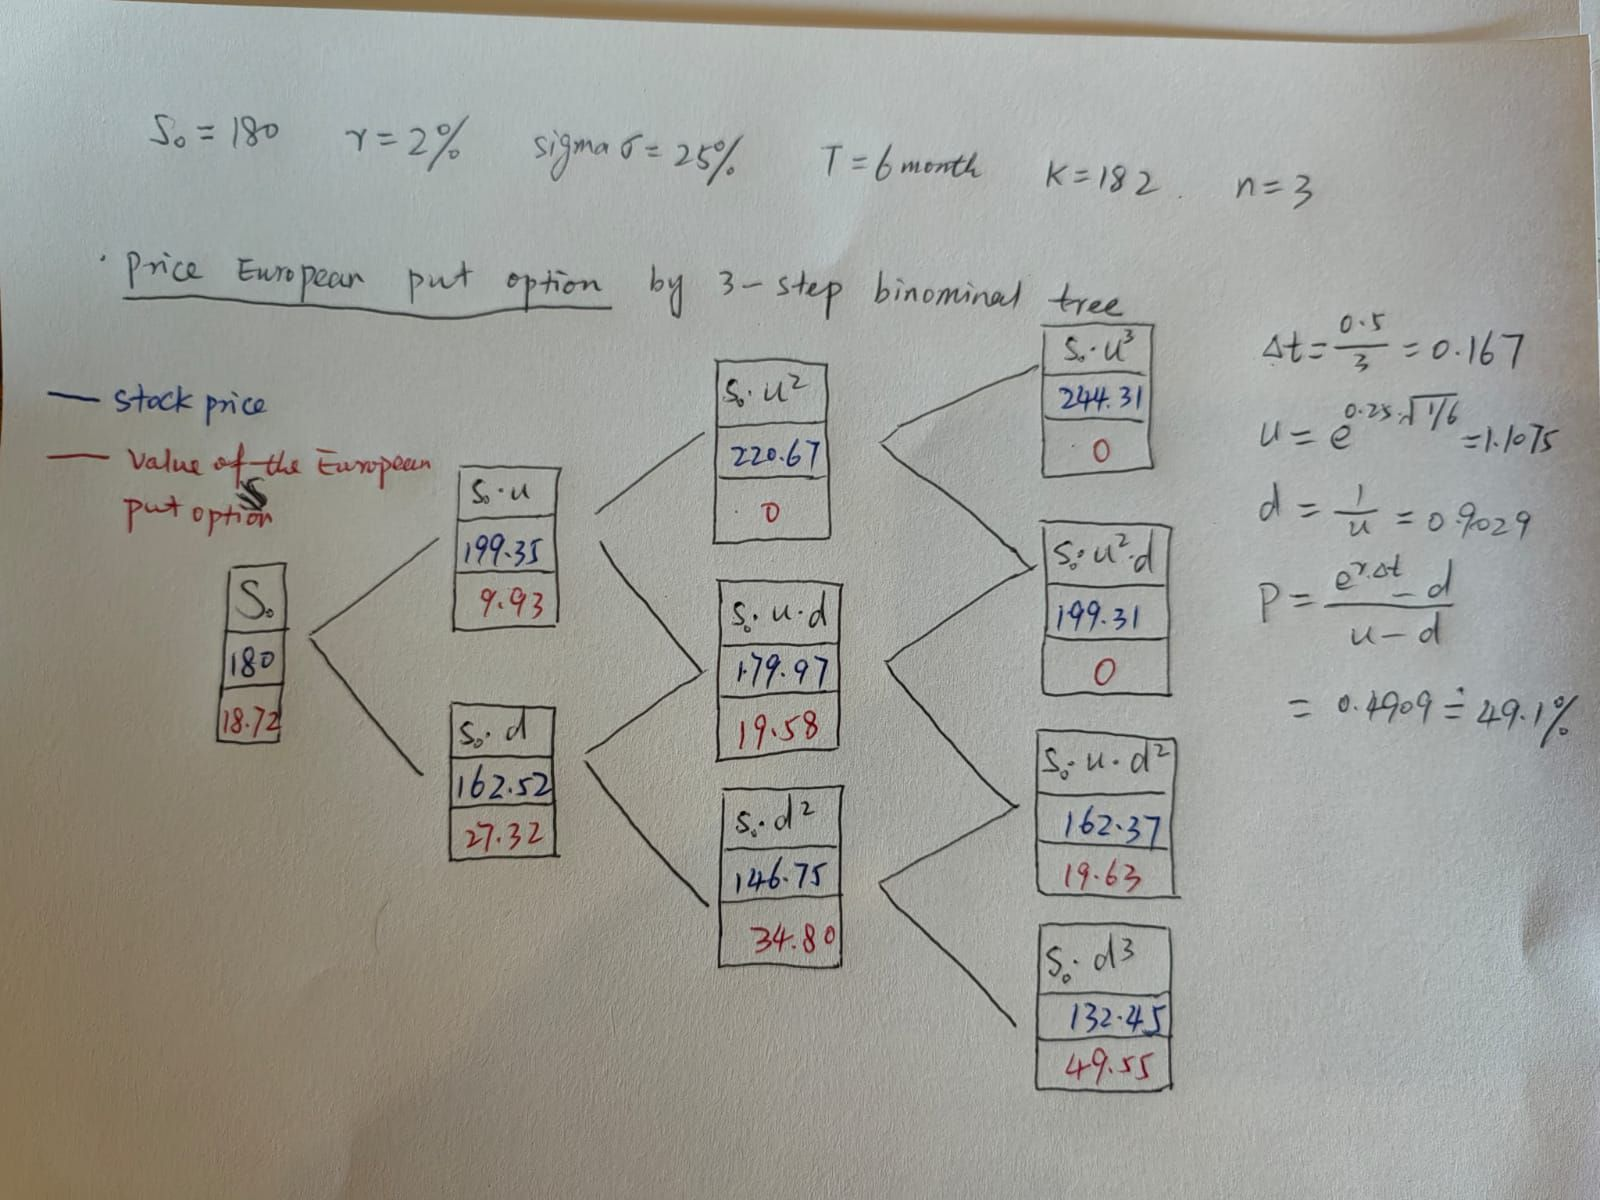 S₀ = 180 r = 2% sigma σ = 25% T = 6 month K = 182 n = 3
Price European put option by 3-step binominal tree
— stock price
— Value of the European
put option
S₀
180
18.72
S₀·u
199.35
9.93
S₀·d
162.52
27.32
S₀·u²
220.67
0
S₀·u·d
179.97
19.58
S₀·d²
146.75
34.80
S₀·u³
244.31
0
S₀·u²·d
199.31
0
S₀·u·d²
162.37
19.63
S₀·d³
132.45
49.55
Δt = 0.5/3 = 0.167
u = e^0.25·√1/6 = 1.1075
d = 1/u = 0.9029
P = e^r·Δt - d / u - d
= 0.4909 ≐ 49.1%